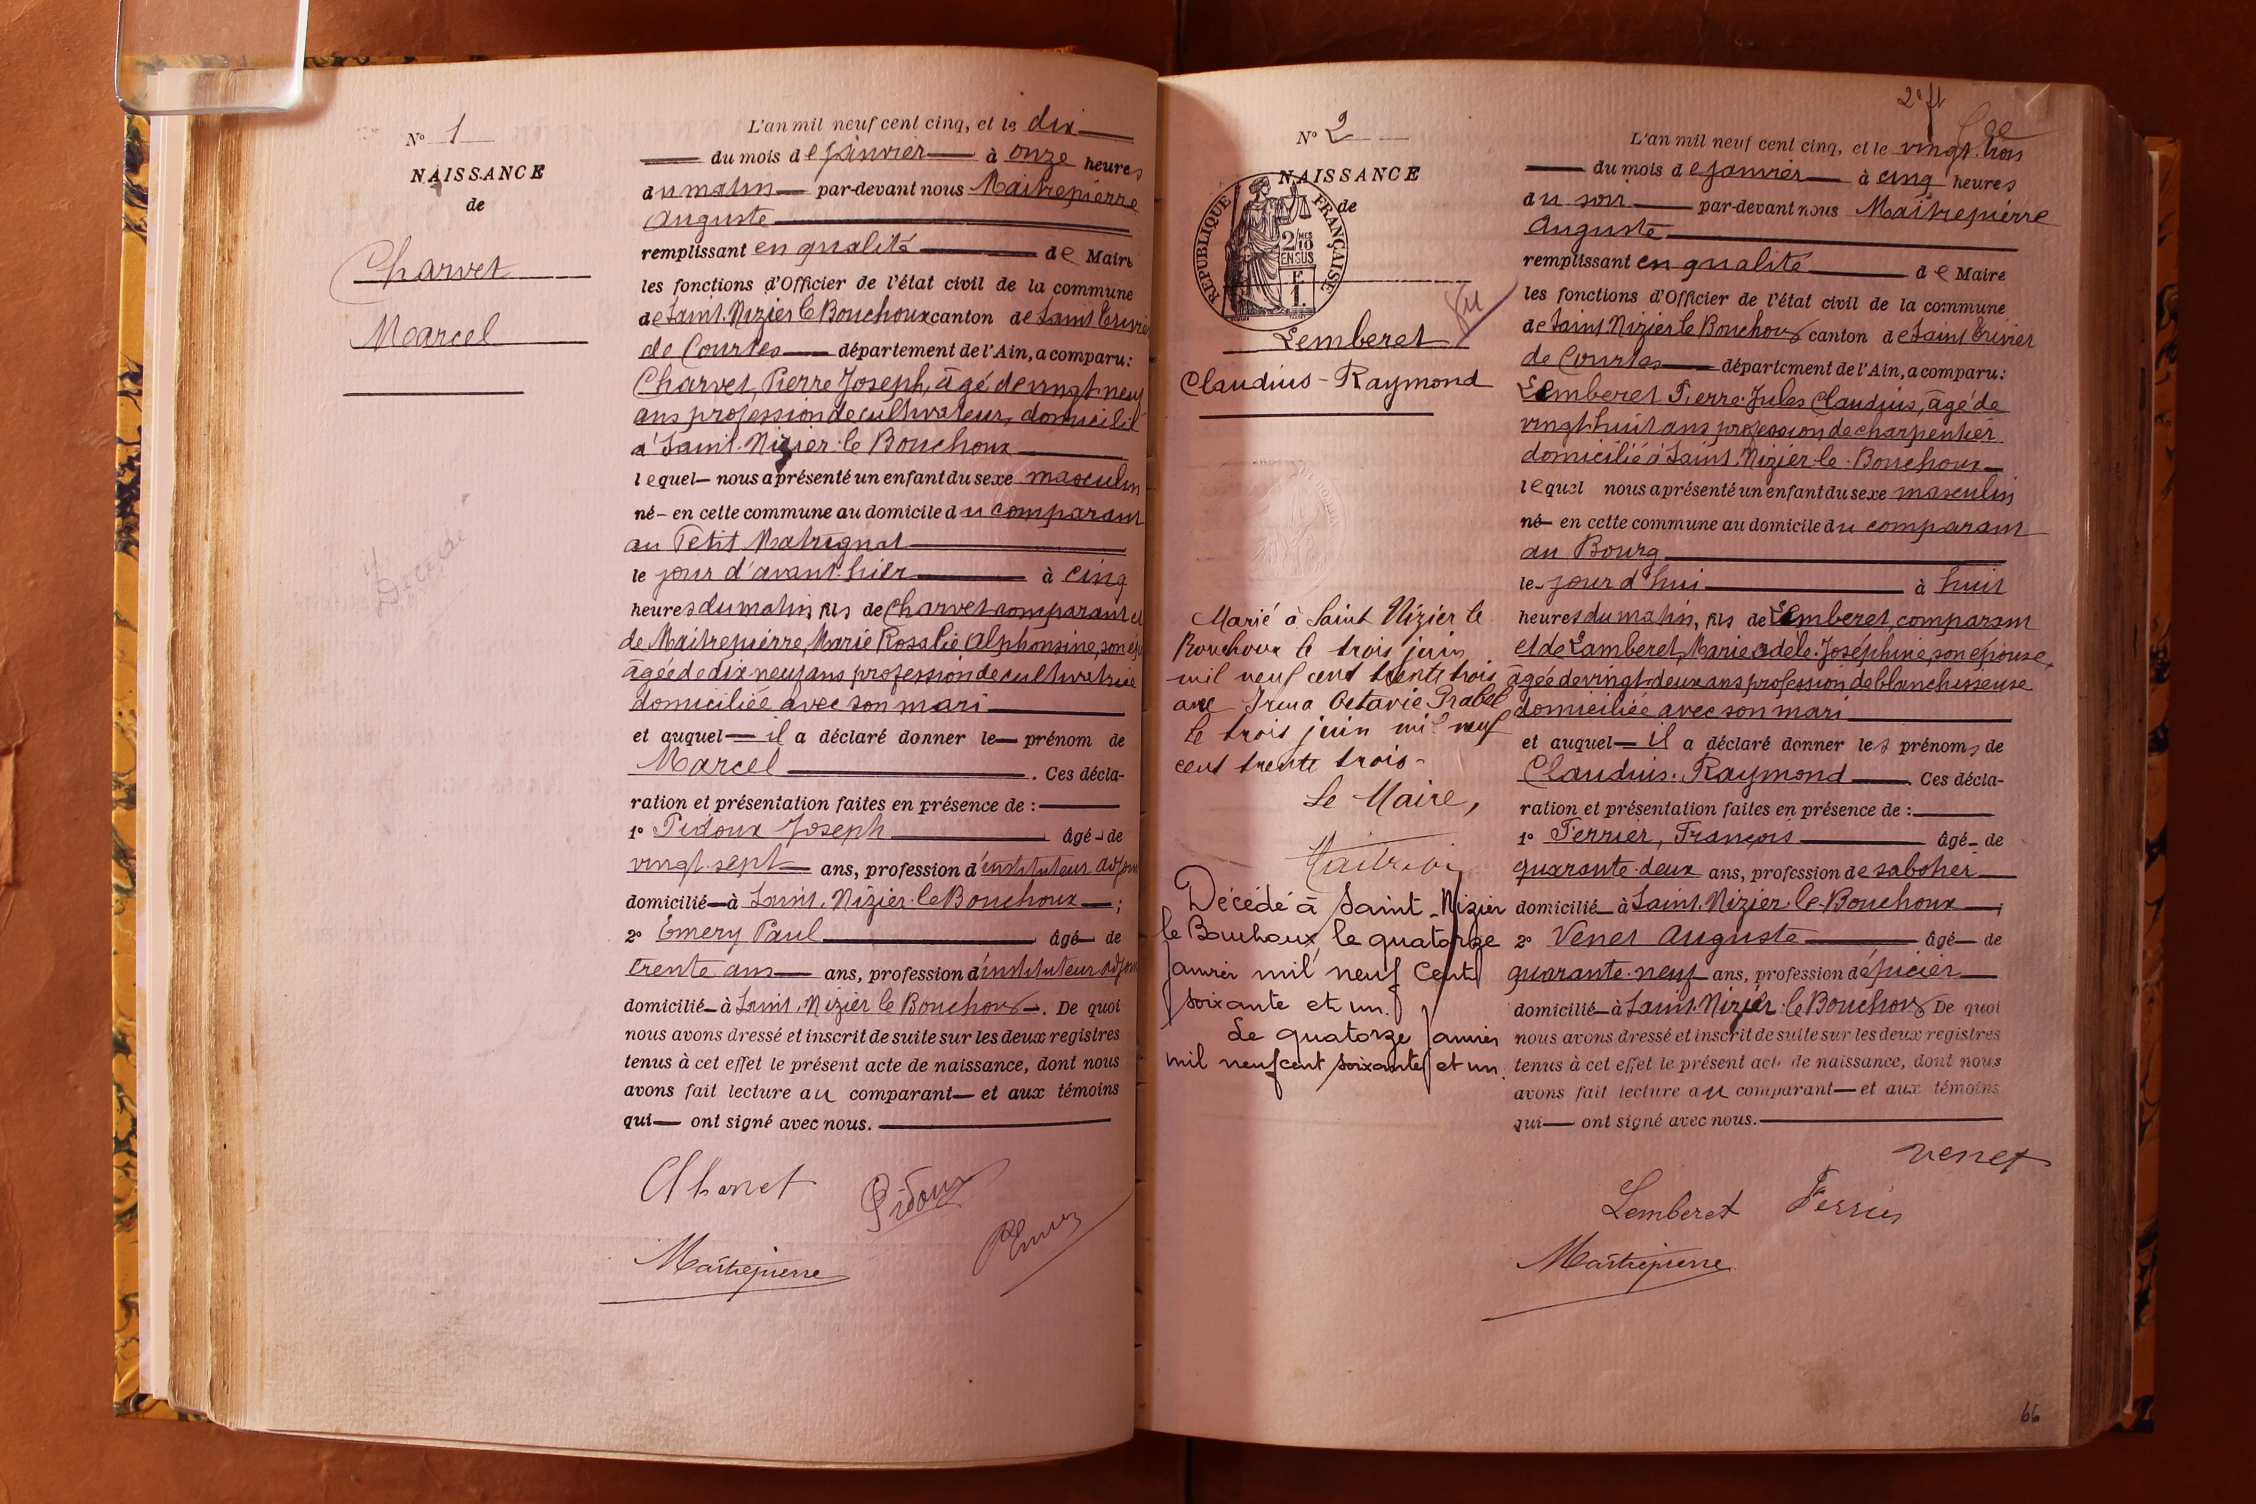 N° 1
NAISSANCE
de
Charvet
Marcel
L'an mil neuf cent cinq, et le dix
du mois de janvier à onze heures
du matin par-devant nous Maitrepierre
Auguste
remplissant en qualité de Maire
les fonctions d'Officier de l'état civil de la commune
de Saint-Nizier le Bouchoux canton de Saint Trivier
de Courtes département de l'Ain, a comparu :
Charvet, Pierre Joseph, âgé de vingt-neuf
ans profession de cultivateur, domicilié
à Saint-Nizier-le Bouchoux
lequel nous a présenté un enfant du sexe masculin
né en cette commune au domicile du comparant
au Petit Matrignat
le jour d'avant-hier à cinq
heures du matin, fils de Charvet comparant et
de Maitrepierre, Marie Rosalie Alphonsine, son
âgée de dix-neuf ans profession de cultivatrice
domiciliée avec son mari
et auquel il a déclaré donner le prénom de
Marcel. Ces décla-
ration et présentation faites en présence de :
1° Pidoux Joseph âgé de
vingt-sept ans, profession d'instituteur adjoint
domicilié à Saint-Nizier-le Bouchoux ;
2° Émery Paul âgé de
trente ans ans, profession d'instituteur adjoint
domicilié à Saint-Nizier le Bouchoux. De quoi
nous avons dressé et inscrit de suite sur les deux registres
tenus à cet effet le présent acte de naissance, dont nous
avons fait lecture au comparant et aux témoins
qui ont signé avec nous.
Charvet Pidoux
PEmery
Maitrepierre
Décédé
N° 2
NAISSANCE
de
REPUBLIQUE FRANÇAISE
2/MES
10
EN SUS
F
1.
Lemberet
Claudius-Raymond
Marié à Saint Nizier le
Bouchoux le trois juin
mil neuf cent trente trois
avec Irma Octavie Grabel
le trois juin mil neuf
cent trente trois-
Le Maire,
Décédé à Saint-Nizier
le Bouchoux, le quatorze
janvier mil neuf cent
soixante et un.
Le quatorze janvier
mil neuf cent soixante et un.
L'an mil neuf cent cinq, et le vingt-trois
du mois de janvier à cinq heures
du soir par-devant nous Maitrepierre
Auguste
remplissant en qualité de Maire
les fonctions d'Officier de l'état civil de la commune
de Saint Nizier le Bouchoux canton de Saint Trivier
de Courtes département de l'Ain, a comparu :
Lemberet Pierre-Jules Claudius, âgé de
vingt-huit ans profession de charpentier
domicilié à Saint-Nizier-le-Bouchoux
lequel nous a présenté un enfant du sexe masculin
né en cette commune au domicile du comparant
au Bourg
le jour d'hui à huit
heures du matin, fils de Lemberet, comparant
et de Lamberet, Marie Adèle-Joséphine, son épouse,
âgée de vingt-deux ans profession de blanchisseuse
domiciliée avec son mari
et auquel il a déclaré donner les prénoms de
Claudius-Raymond. Ces décla-
ration et présentation faites en présence de :
1° Ferrier, François âgé de
quarante-deux ans, profession de sabotier
domicilié à Saint-Nizier-le-Bouchoux ;
2° Venet Auguste âgé de
quarante-neuf ans, profession d'épicier
domicilié à Saint-Nizier-le Bouchoux De quoi
nous avons dressé et inscrit de suite sur les deux registres
tenus à cet effet le présent acte de naissance, dont nous
avons fait lecture au comparant et aux témoins
qui ont signé avec nous.
Venet
Lemberet Ferrier
Maitrepierre
66